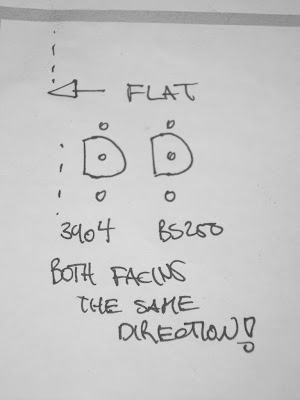 FLAT
3904 BS250
BOTH FACING
THE SAME
DIRECTION!